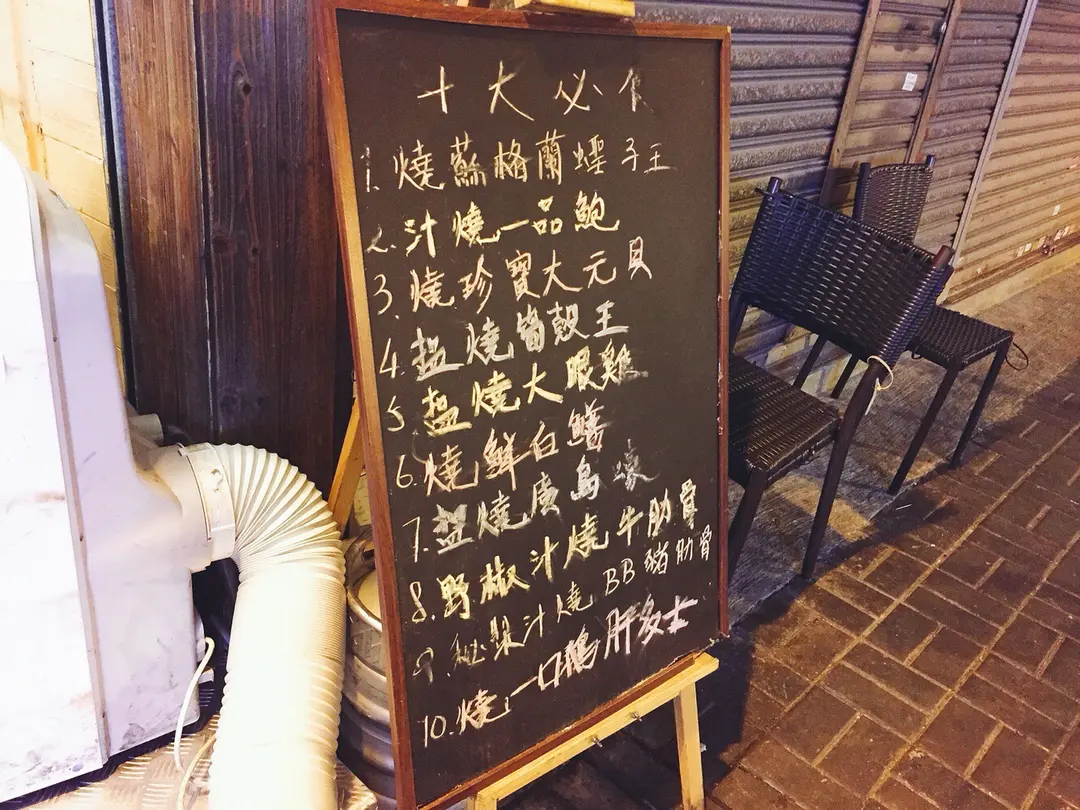 十大必食
1. 燒蘇格蘭蟶子王
2. 汁燒一品鮑
3. 燒珍寶大元貝
4. 塩燒殼王
5 塩燒大眼雞
6. 燒鮮白鱔
7. 塩燒廣島蠔
8. 野椒汁燒牛肋骨
9. 秘製汁燒BB豬肋骨
10. 燒一口鵝肝多士